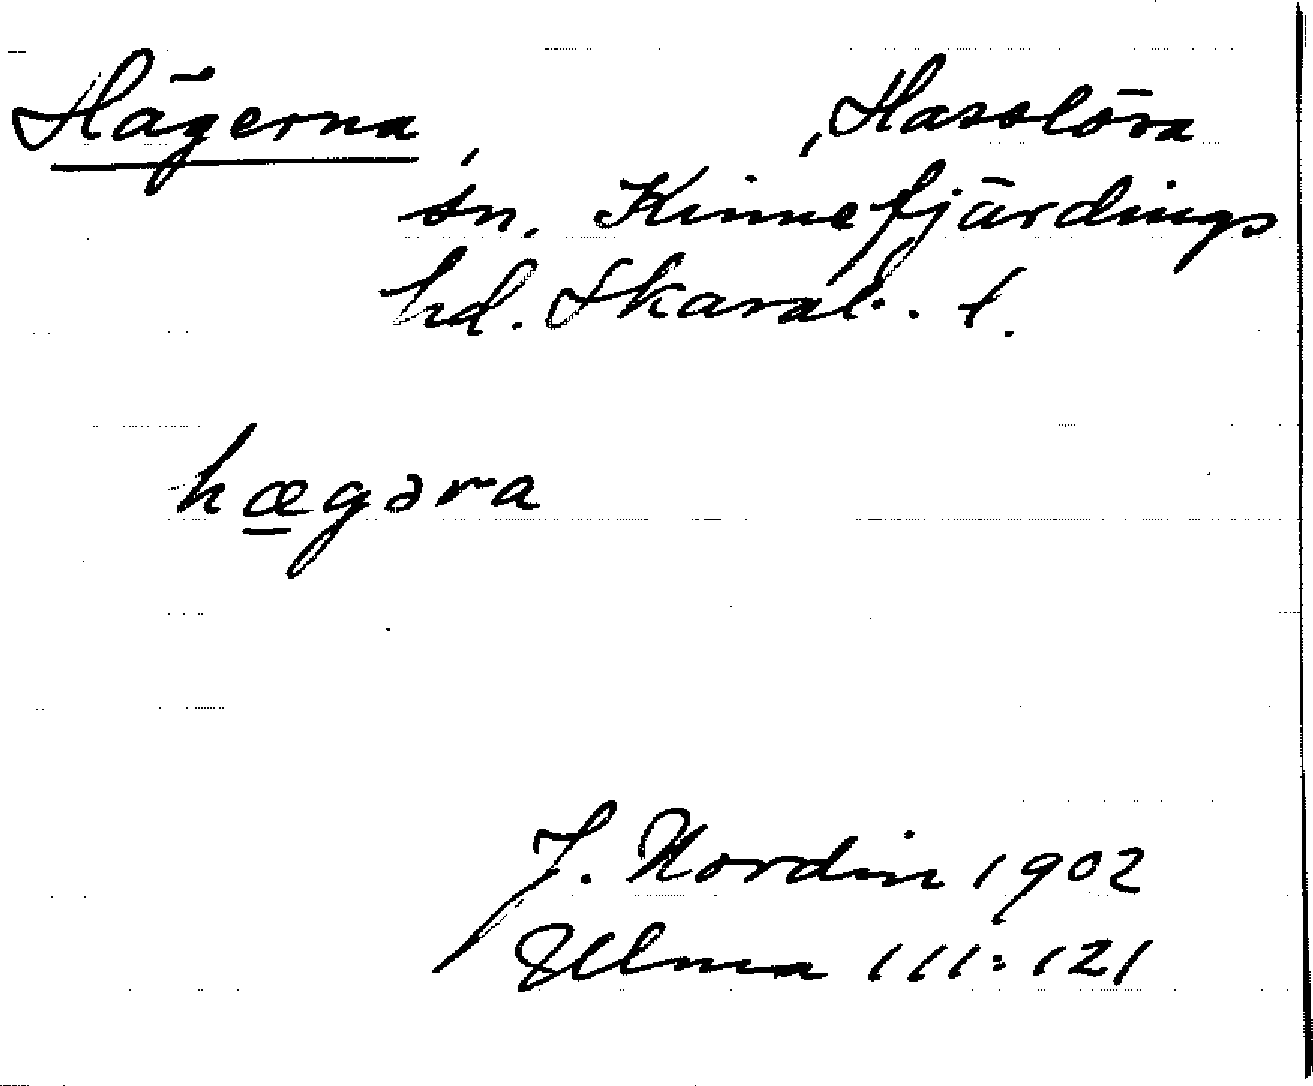 Hägerna, Hasslösa
sn. Kinnefjärdings
hd. Skarab. l.
hægəra
J. Nordin 1902
Ulma 111:121